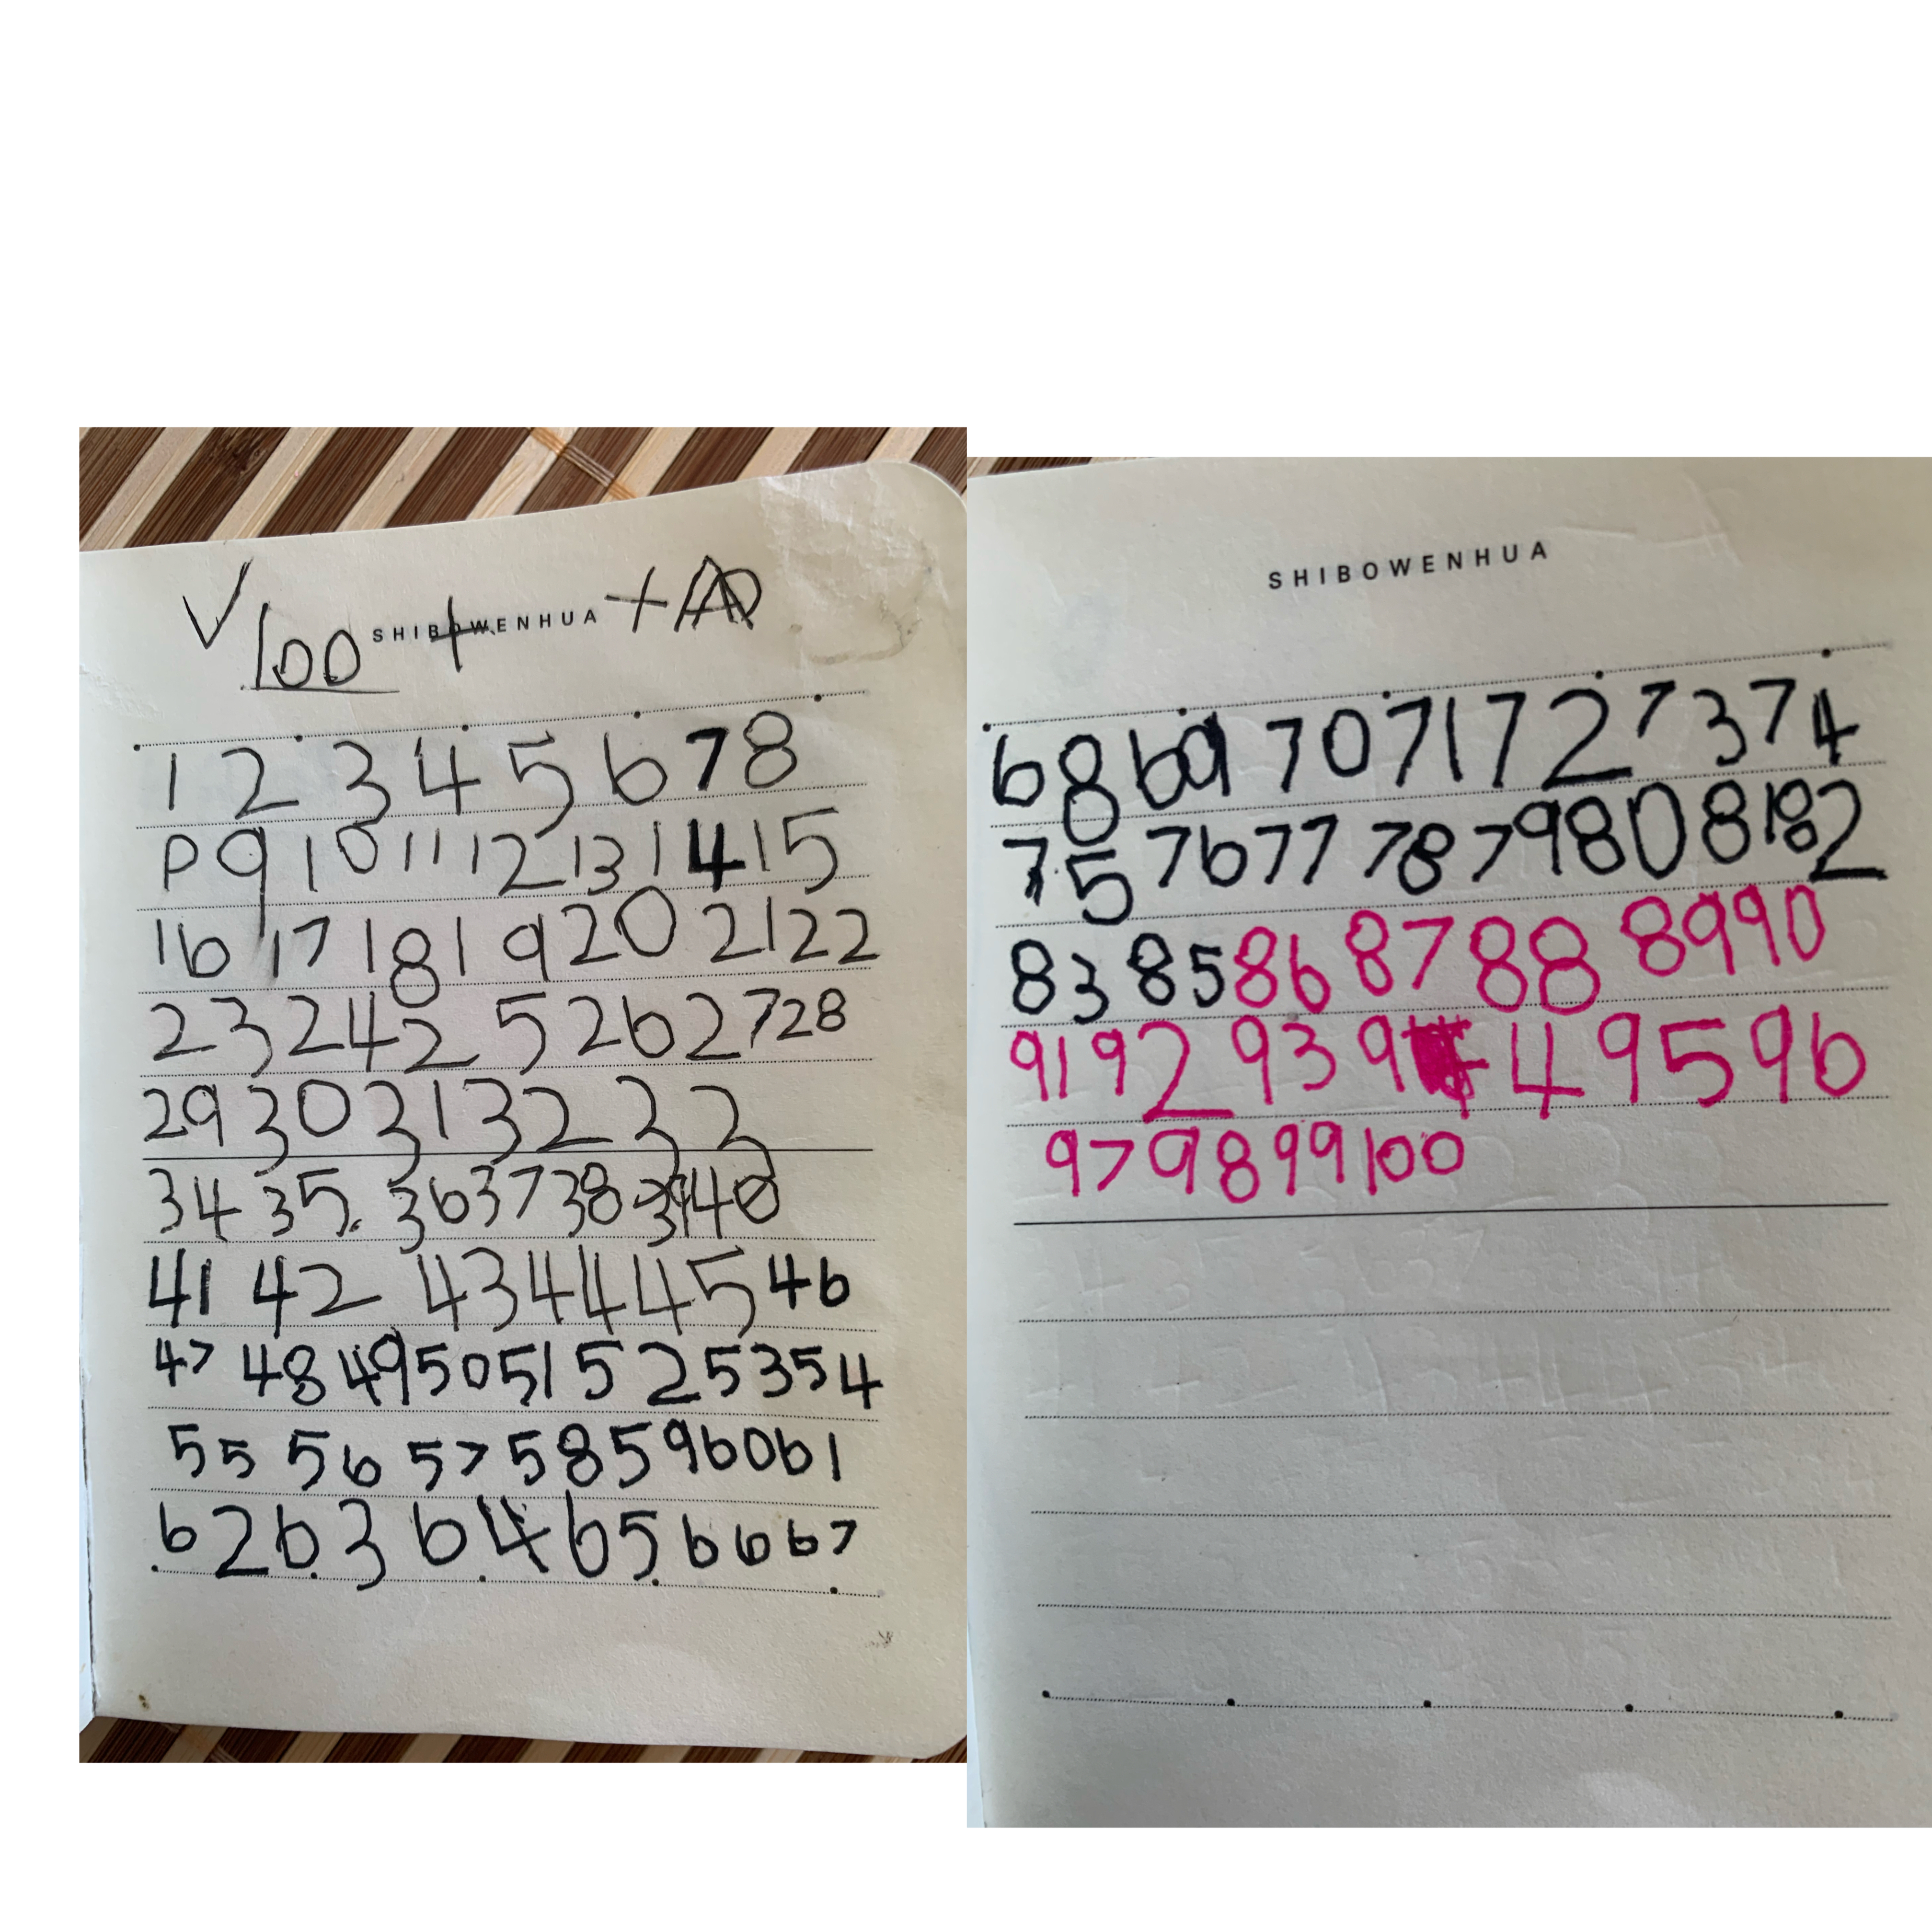 ✓ 100 + +A
SHIBOWENHUA
1 2 3 4 5 6 7 8
P 9 10 11 12 13 14 15
16 17 18 19 20 21 22
23 24 25 26 27 28
29 30 31 32 33
34 35. 36 37 38 39 40
41 42 43 44 45 46
47 48 49 50 51 52 53 54
55 56 57 58 59 60 61
62 63 64 65 66 67
SHIBOWENHUA
68 69 70 71 72 73 74
75 76 77 78 79 80 81 82
83 85 86 87 88 89 90
91 92 93 9 4 95 96
97 98 99 100